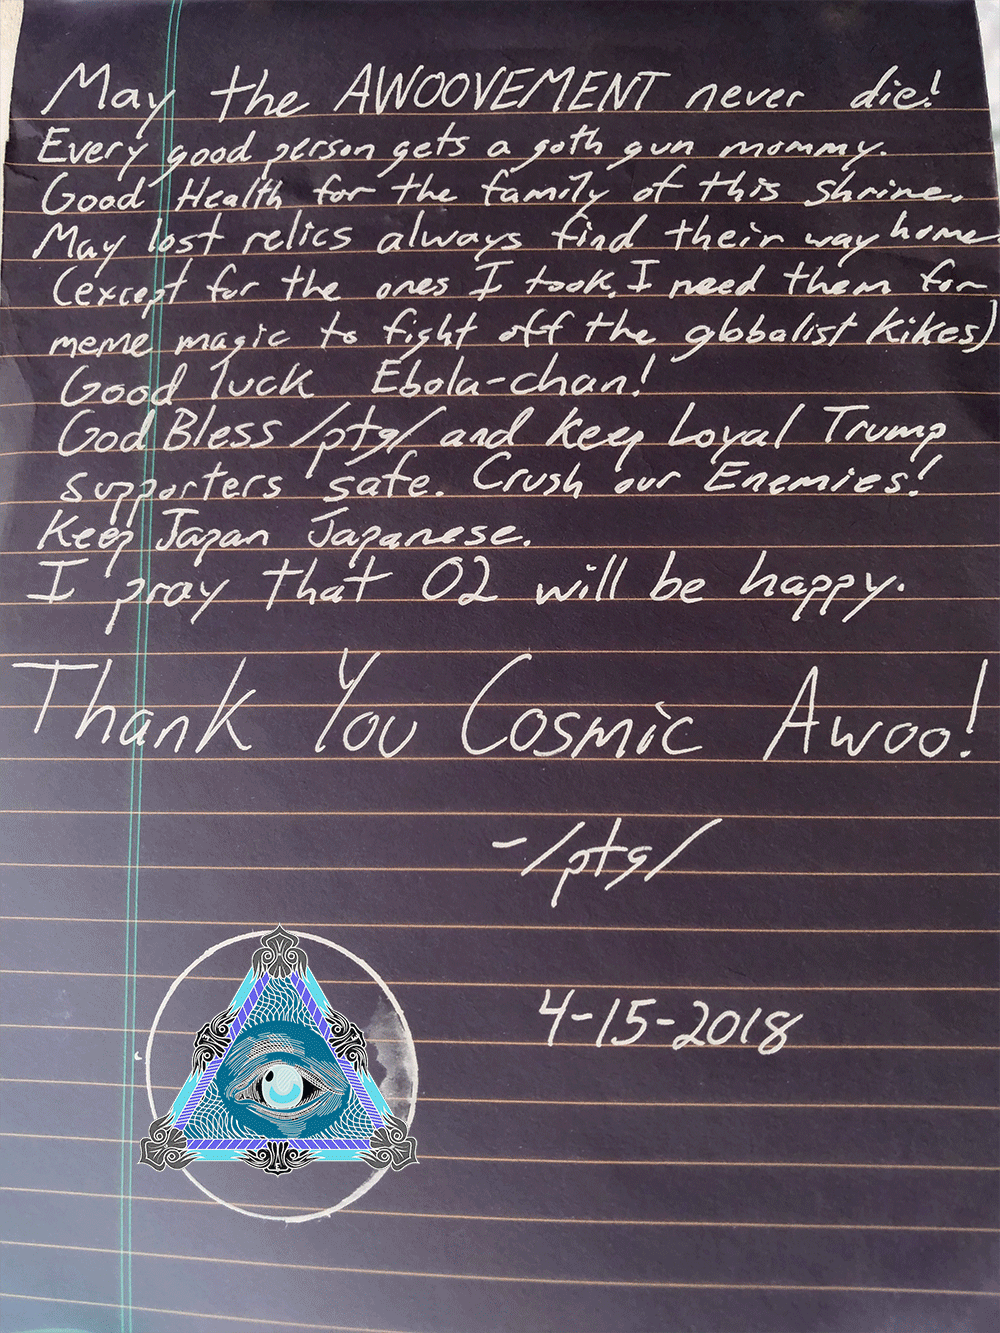 May the AWOOVEMENT never die!
Every good person gets a goth gun mommy.
Good Health for the family of this shrine.
May lost relics always find their way home
(except for the ones I took. I need them for
meme magic to fight off the globalist kikes)
Good luck Ebola-chan!
God Bless /ptg/ and keep Loyal Trump
supporters safe. Crush our Enemies!
Keep Japan Japanese.
I pray that 02 will be happy.
Thank You Cosmic Awoo!
-/ptg/
4-15-2018